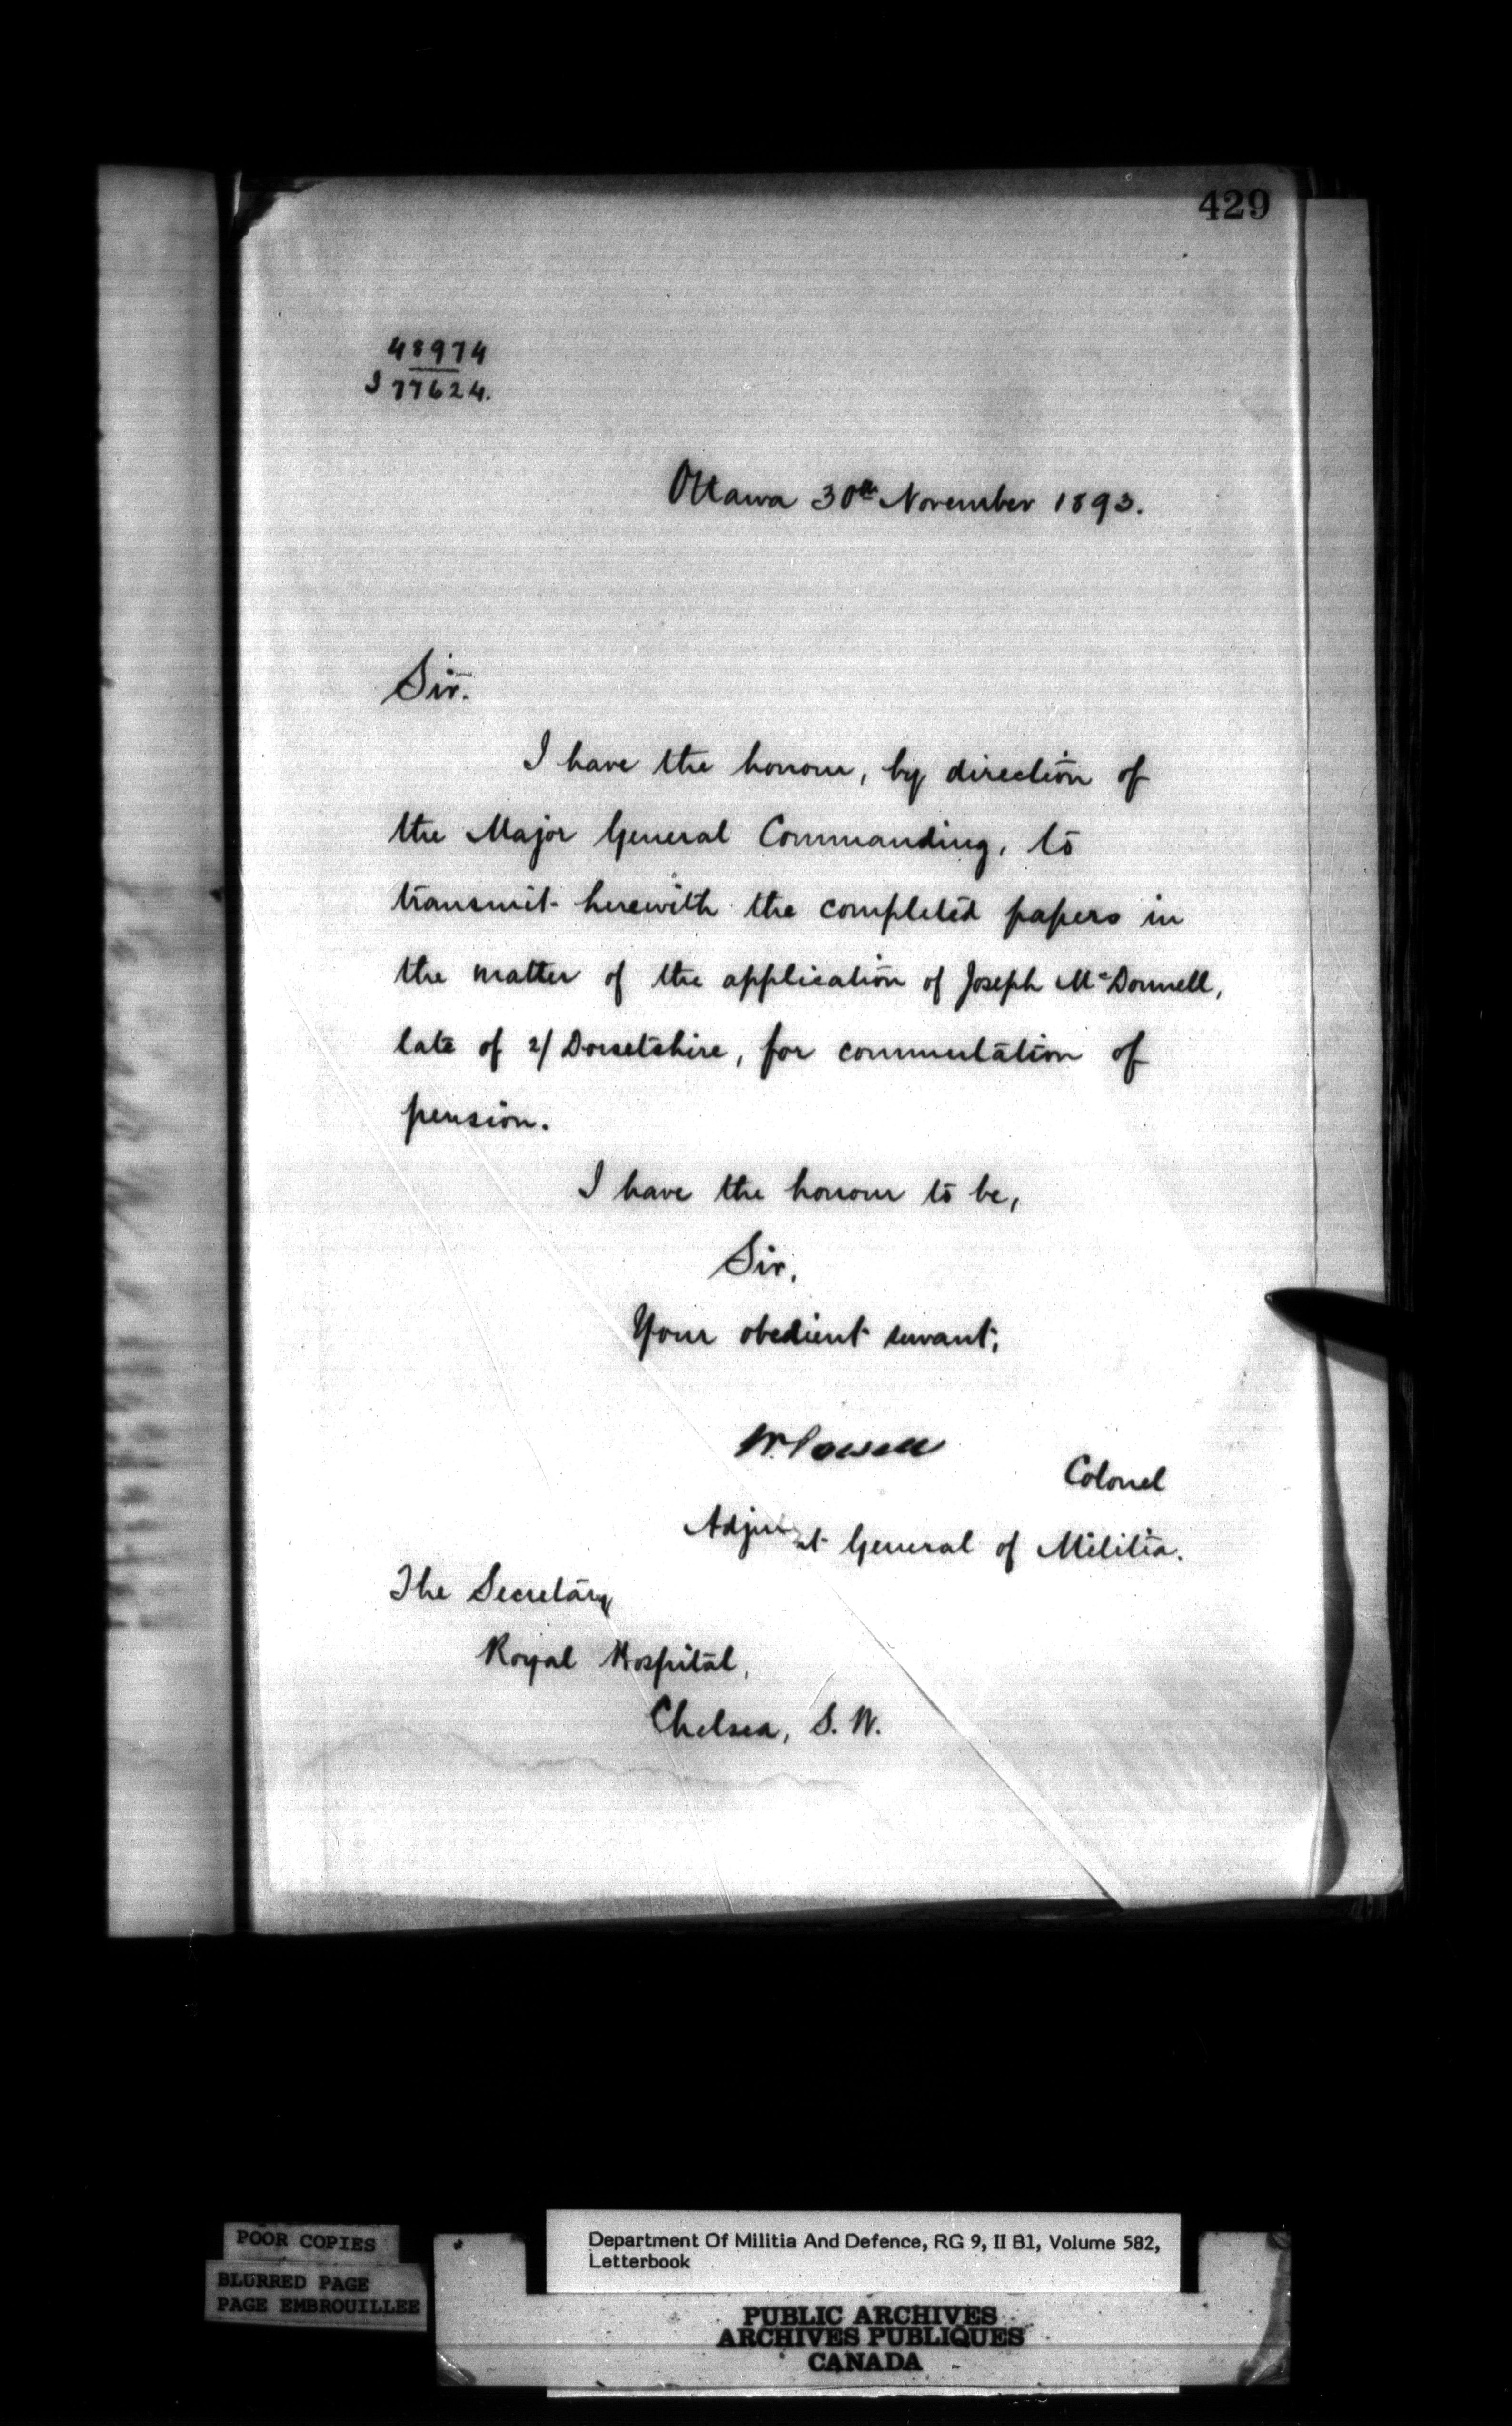 429
48974
J 77624.
Ottawa 30th November 1893.
Sir.
I have the honour, by direction of
the Major General Commanding, to
transmit herewith the completed papers in
the matter of the application of Joseph McDonnell,
late of 2/ Dorsetshire, for commutation of
pension.
I have the honour to be,
Sir,
Your obedient servant,
W. Powell
Colonel
Adju t General of Militia.
The Secretary
Royal Hospital,
Chelsea, S. W.
POOR COPIES
BLURRED PAGE
PAGE EMBROUILLEE
Department Of Militia And Defence, RG 9, II B1, Volume 582,
Letterbook
PUBLIC ARCHIVES
ARCHIVES PUBLIQUES
CANADA